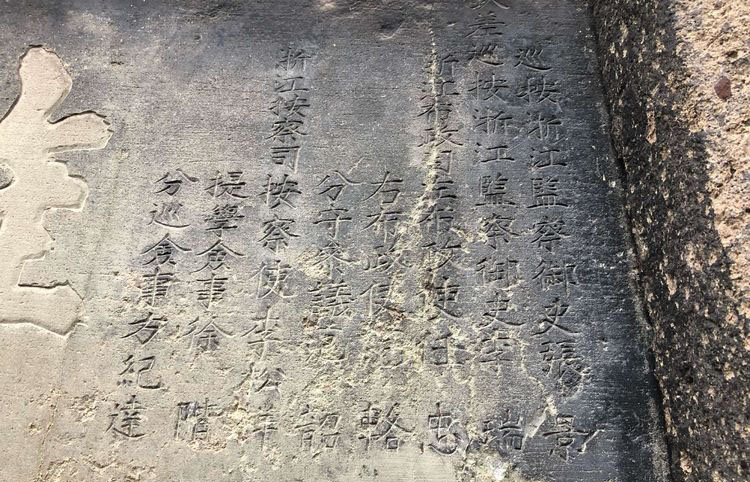 巡按浙江監察御史張景
差巡按浙江監察御史瑞
浙江布政司左布政使任忠
右布政使輅
分守叅議韶
浙江按察司按察使李松祥
提學僉事徐階
分巡僉事方紀達